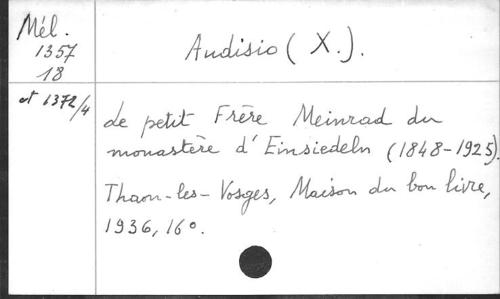 Mél.
1357
18
et 1372/4
Audisio (X.).
Le petit Frère Meinrad du
monastère d'Einsiedeln (1848-1925).
Thaon-les-Vosges, Maison du bon livre,
1936, 16°.